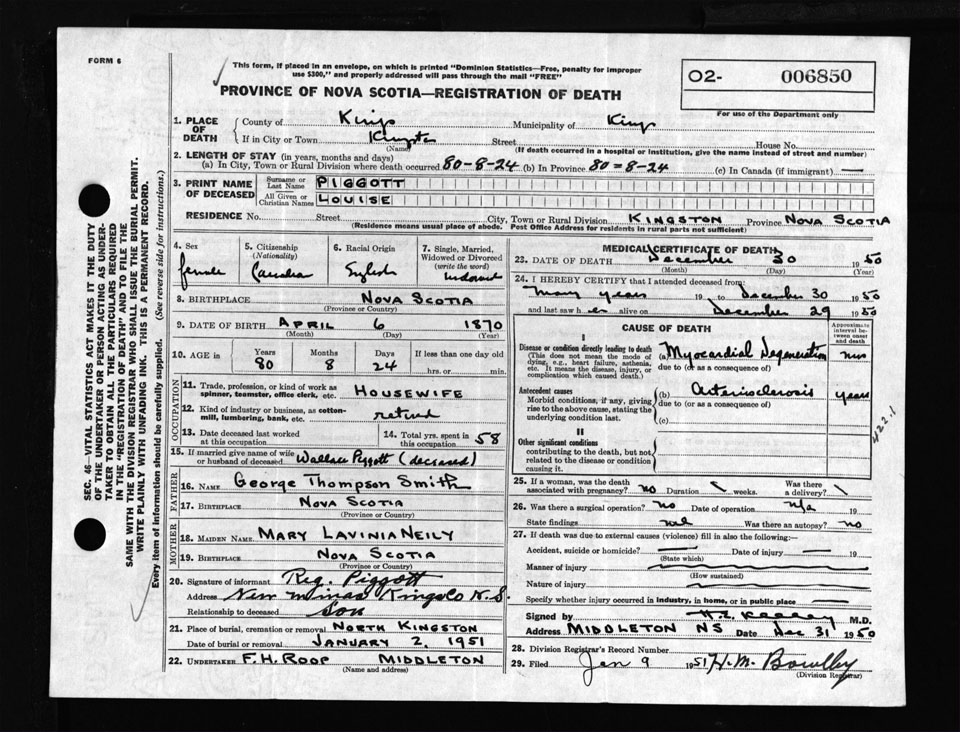 FORM 6
This form, if placed in an envelope, on which is printed "Dominion Statistics—Free, penalty for improper
use $300," and properly addressed will pass through the mail "FREE"
PROVINCE OF NOVA SCOTIA—REGISTRATION OF DEATH
O2- 006850
For use of the Department only
1. PLACE OF DEATH { County of Kings Municipality of Kings
If in City or Town Kingston Street House No.
(Name) (If death occurred in a hospital or institution, give the name instead of street and number)
2. LENGTH OF STAY (in years, months and days)
(a) In City, Town or Rural Division where death occurred 80-8-24 (b) In Province 80=8-24 (c) In Canada (if immigrant) —
3. PRINT NAME OF DECEASED { Surname or Last Name PIGGOTT
All Given or Christian Names LOUISE
RESIDENCE No. Street City, Town or Rural Division KINGSTON Province NOVA SCOTIA
(Residence means usual place of abode. Post Office Address for residents in rural parts not sufficient)
4. Sex female
5. Citizenship (Nationality) Canadian
6. Racial Origin English
7. Single, Married, Widowed or Divorced (write the word) widowed
8. BIRTHPLACE NOVA SCOTIA
(Province or Country)
9. DATE OF BIRTH APRIL 6 1870
(Month) (Day) (Year)
10. AGE in Years Months Days If less than one day old
80 8 24 hrs. or min.
OCCUPATION
11. Trade, profession, or kind of work as spinner, teamster, office clerk, etc. HOUSEWIFE
12. Kind of industry or business, as cotton-mill, lumbering, bank, etc. retired
13. Date deceased last worked at this occupation
14. Total yrs. spent in this occupation 58
15. If married give name of wife or husband of deceased Wallace Piggott (deceased)
FATHER
16. NAME George Thompson Smith
17. BIRTHPLACE NOVA SCOTIA
(Province or Country)
MOTHER
18. MAIDEN NAME MARY LAVINIA NEILY
19. BIRTHPLACE NOVA SCOTIA
(Province or Country)
20. Signature of informant Reg. Piggott
Address New Minas Kings Co N.S.
Relationship to deceased Son
21. Place of burial, cremation or removal NORTH KINGSTON
Date of burial or removal JANUARY 2, 1951
22. UNDERTAKER F.H. ROOP MIDDLETON
(Name and address)
MEDICAL CERTIFICATE OF DEATH
23. DATE OF DEATH December 30 1950
(Month) (Day) (Year)
24. I HEREBY CERTIFY that I attended deceased from:
Many years 19 to December 30 1950
and last saw her alive on December 29 1950
CAUSE OF DEATH
Approximate interval between onset and death
I
Disease or condition directly leading to death
(This does not mean the mode of dying, e.g., heart failure, asthenia, etc. It means the disease, injury, or complication which caused death.)
(a) Myocardial Degeneration
due to (or as a consequence of)
Antecedent causes
Morbid conditions, if any, giving rise to the above cause, stating the underlying condition last.
(b) Arteriosclerosis years
due to (or as a consequence of)
(c)
422.1
II
Other significant conditions
contributing to the death, but not related to the disease or condition causing it.
25. If a woman, was the death associated with pregnancy? no Duration weeks. Was there a delivery?
26. Was there a surgical operation? no Date of operation n/a
State findings nil Was there an autopsy? no
27. If death was due to external causes (violence) fill in also the following:—
Accident, suicide or homicide? — Date of injury — 19
(State which)
Manner of injury
(How sustained)
Nature of injury
Specify whether injury occurred in industry, in home, or in public place —
Signed by M.D.
Address MIDDLETON NS Date Dec 31 1950
28. Division Registrar's Record Number
29. Filed Jan 9 1951 H.M. Bowlby
(Division Registrar)
SEC. 46—VITAL STATISTICS ACT MAKES IT THE DUTY
OF THE UNDERTAKER OR PERSON ACTING AS UNDER-
TAKER TO OBTAIN ALL THE PARTICULARS REQUIRED
IN THE "REGISTRATION OF DEATH" AND TO FILE THE
SAME WITH THE DIVISION REGISTRAR WHO SHALL ISSUE THE BURIAL PERMIT.
WRITE PLAINLY WITH UNFADING INK. THIS IS A PERMANENT RECORD.
Every item of information should be carefully supplied. (See reverse side for instructions.)